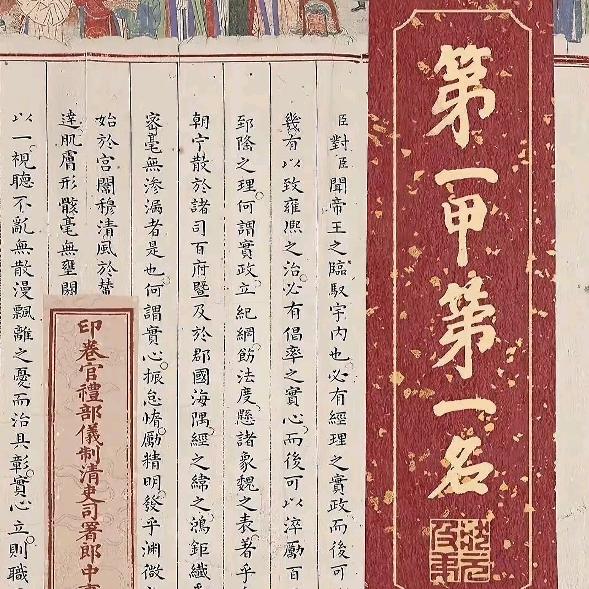 第一甲第一名
臣對臣聞帝王之臨馭宇内也必有經理之實政而後可
幾有以致雍熙之治必有倡率之實心而後可以淬勵百
郅隆之理何謂實政立紀綱飭法度懸諸象魏之表著乎
朝宁散於諸司百府暨及於郡國海隅經之緯之鴻鉅纖
密毫無滲漏者是也何謂實心振怠惰勵精明發乎淵微
始於宮闈穆清風於輦
達肌膚形骸毫無壅閼
以一視聽不亂無散漫飄離之憂而治具彰實心立則職
印卷官禮部儀制清吏司署郎中事